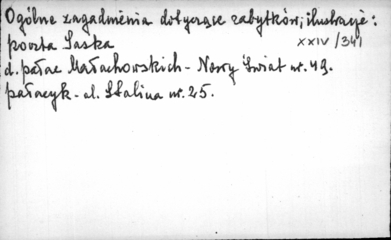 Ogólne zagadnienia dotyczące zabytków; ilustracje:
poczta Saska
XXIV/341
d. pałac Małachowskich - Nowy Świat nr. 49.
pałacyk - al. Stalina nr. 25.